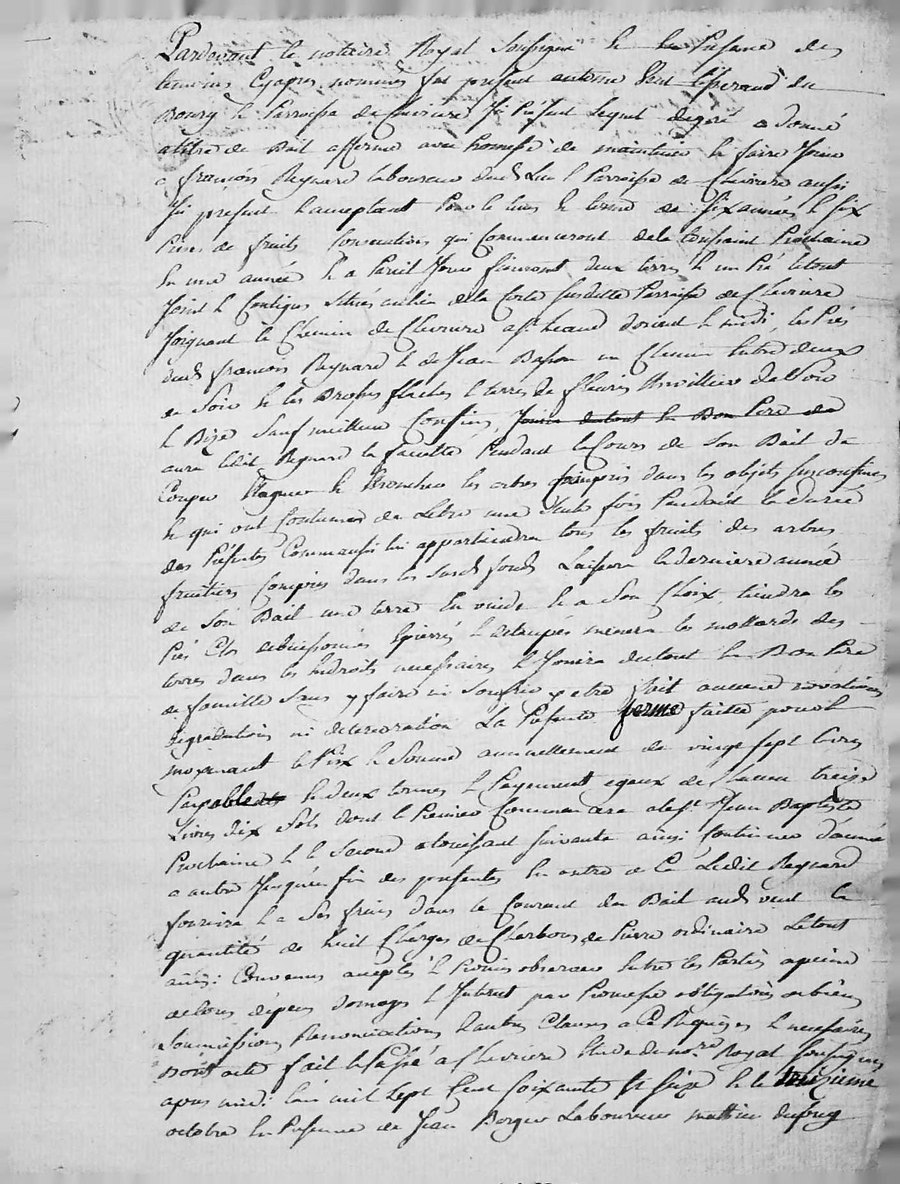 Pardevant le notaire Royal soussigné & en Presence des
temoins Cyapres nommés fut present antoine
Bourg & Parroisse de Chevriere Ji Present Lequel degré a donné
a titre de Bail afferme avec Promesse de maintenir & faire Jouir
a françois Reynard laboureur dud Lieu & Parroisse de Chevriere aussi
Ji present & acceptant Pour le tems & terme de six années & six
Prises de fruits Consecutives qui Commenceront dela toussaint Prochaine
En une année & a Pareil Jour finiront deux terres & un Pré letout
Joint & Contigus situés aulieu dela Coste susditte Parroisse de Chevriere
Joignant le Chemin de Chevriere a st heand dorient & midi, les Prés
dud françois Reynard & de Jean Basson un Chemin Entre deux
de Soir & les & terres de fleuris
& Bize Sauf meilleurs Confins, Jouir dutout En Bon Pere de
aura ledit Reynard la faculté Pendant le Cours de Son Bail de
Couper Elaguer & Ebrancher les arbres Compris dans les objets susconfinés
& qui ont Coutume de Letre une Seule fois Pendant la durée
des Présentes Commaussi lui appartiendra tous les fruits des arbres
fruitiers Compris dans les susds fonds Laissera la derniere année
de Son Bail une terre En vuide & a Son Choix, tiendra les
Prés Clos Epierrés & Detaupés menera les mottards des
terres dans les Endroits necessaires & Jouira dutout En Bon Pere
de famille Sans y faire ni Souffrir y etre fait aucune novations
degradations ni deterioration La Présente ferme faitte pour &
moyenant le Prix & Somme annuellement de vingt sept livres
Payable En deux termes & Payements egaux de Chacun treize
Livres dix Sols dont le Premier Commencera a la st Jean Baptiste
Prochaine & le Second a toussaint suivante ainsi Continuer d'année
a autre Jusquéa fin des presentes En outre de Cé Ledit Reynard
fournira & a Ses frais dans le Courant du Bail aud la
quantité de huit Charges de Charbons de Pierre ordinaire Letout
ainsi Convenus accepté & Promis observer Entre les Parties apeine
detous dépens domages & Interest par Promesse obligations
Soumissions Renonciations & autres Clauses a Ce Requises & necessaires
Dont acte fait & Passé a Chevriere Etude de nore Royal soussigné
apres midi: L'an mil Sept Cent Soixante & Seize & le
octobre En Presence de Jean Berger Laboureur mattieu dupuy